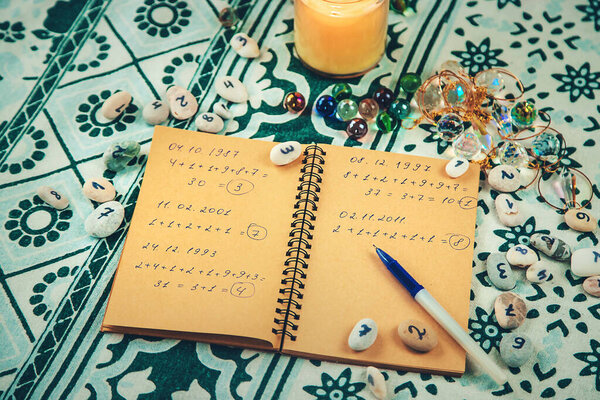 04.10.1987
4+1+1+9+8+7=
30 = 3
11.02.2001
1+1+2+2+1 = 7
24.12.1993
2+4+1+2+1+9+9+3=
31 = 3+1 = 4
08.12.1997
8+1+2+1+9+9+7=
37 = 3+7 = 10 = 1
02.11.2011
2+1+1+2+1+1 = 8
2